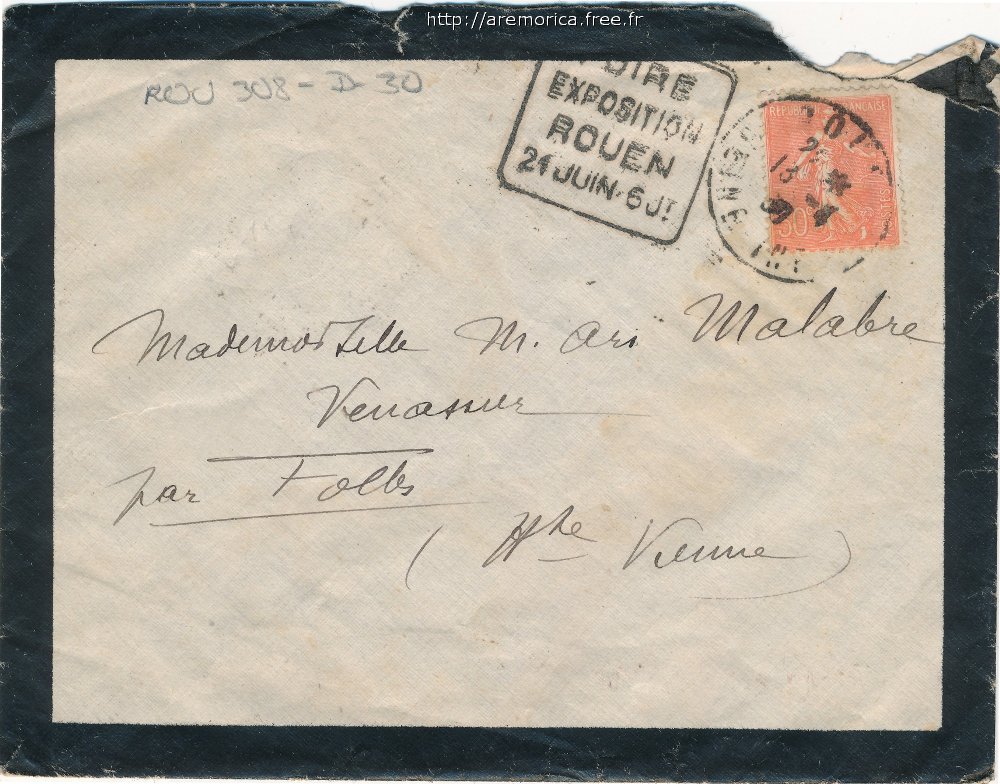 http://aremorica.free.fr
ROU 308 - D 30
FOIRE
EXPOSITION
ROUEN
21 JUIN-6 JT
REPUBLIQUE FRANÇAISE
50c
Mademoiselle M. Malabre
par Folles
(Hte Vienne)